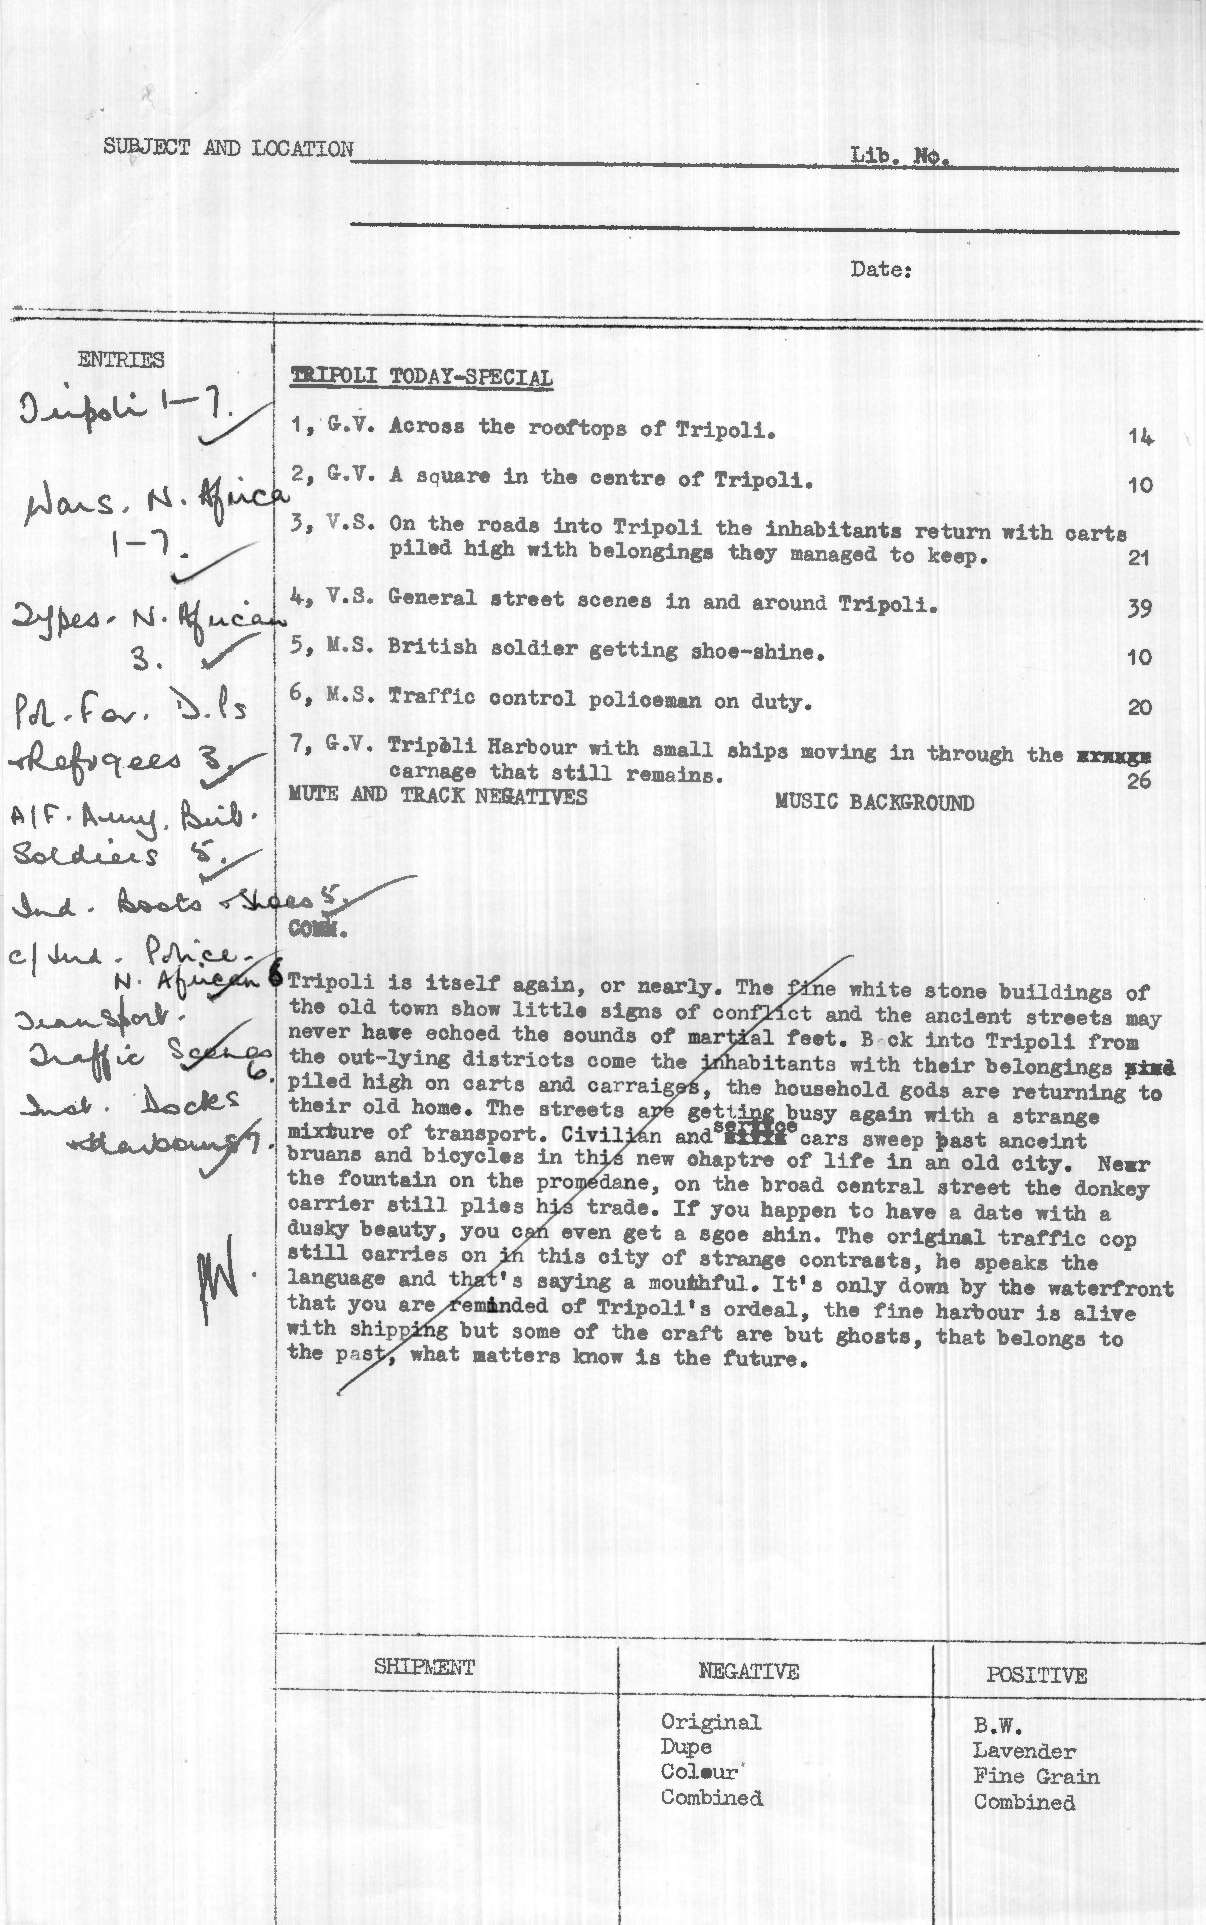 SUBJECT AND LOCATION
Lib. No.
Date:
ENTRIES
Tripoli 1-7.
Wars. N. Africa
1-7.
Types. N. African
3.
Pol. For. D.Ps
+Refugees 3.
A/F. Army. Brit.
Soldiers 5.
Ind. Boots + Shoes 5.
c/Ind. Police.
N. African 6
Transport.
Traffic Scenes
6.
Inst. Docks
+Harbours 7.
TRIPOLI TODAY-SPECIAL
1, G.V. Across the rooftops of Tripoli. 14
2, G.V. A square in the centre of Tripoli. 10
3, V.S. On the roads into Tripoli the inhabitants return with carts
piled high with belongings they managed to keep. 21
4, V.S. General street scenes in and around Tripoli. 39
5, M.S. British soldier getting shoe-shine. 10
6, M.S. Traffic control policeman on duty. 20
7, G.V. Tripoli Harbour with small ships moving in through the
carnage that still remains. 26
MUTE AND TRACK NEGATIVES MUSIC BACKGROUND
COMM.
Tripoli is itself again, or nearly. The fine white stone buildings of
the old town show little signs of conflict and the ancient streets may
never have echoed the sounds of martial feet. B ck into Tripoli from
the out-lying districts come the inhabitants with their belongings
piled high on carts and carraiges, the household gods are returning to
their old home. The streets are getting busy again with a strange
mixture of transport. Civilian and service cars sweep past anceint
bruans and bicycles in this new chaptre of life in an old city. Near
the fountain on the promedane, on the broad central street the donkey
carrier still plies his trade. If you happen to have a date with a
dusky beauty, you can even get a sgoe shin. The original traffic cop
still carries on in this city of strange contrasts, he speaks the
language and that's saying a mouthful. It's only down by the waterfront
that you are reminded of Tripoli's ordeal, the fine harbour is alive
with shipping but some of the craft are but ghosts, that belongs to
the past, what matters know is the future.
SHIPMENT
NEGATIVE
Original
Dupe
Colour
Combined
POSITIVE
B.W.
Lavender
Fine Grain
Combined